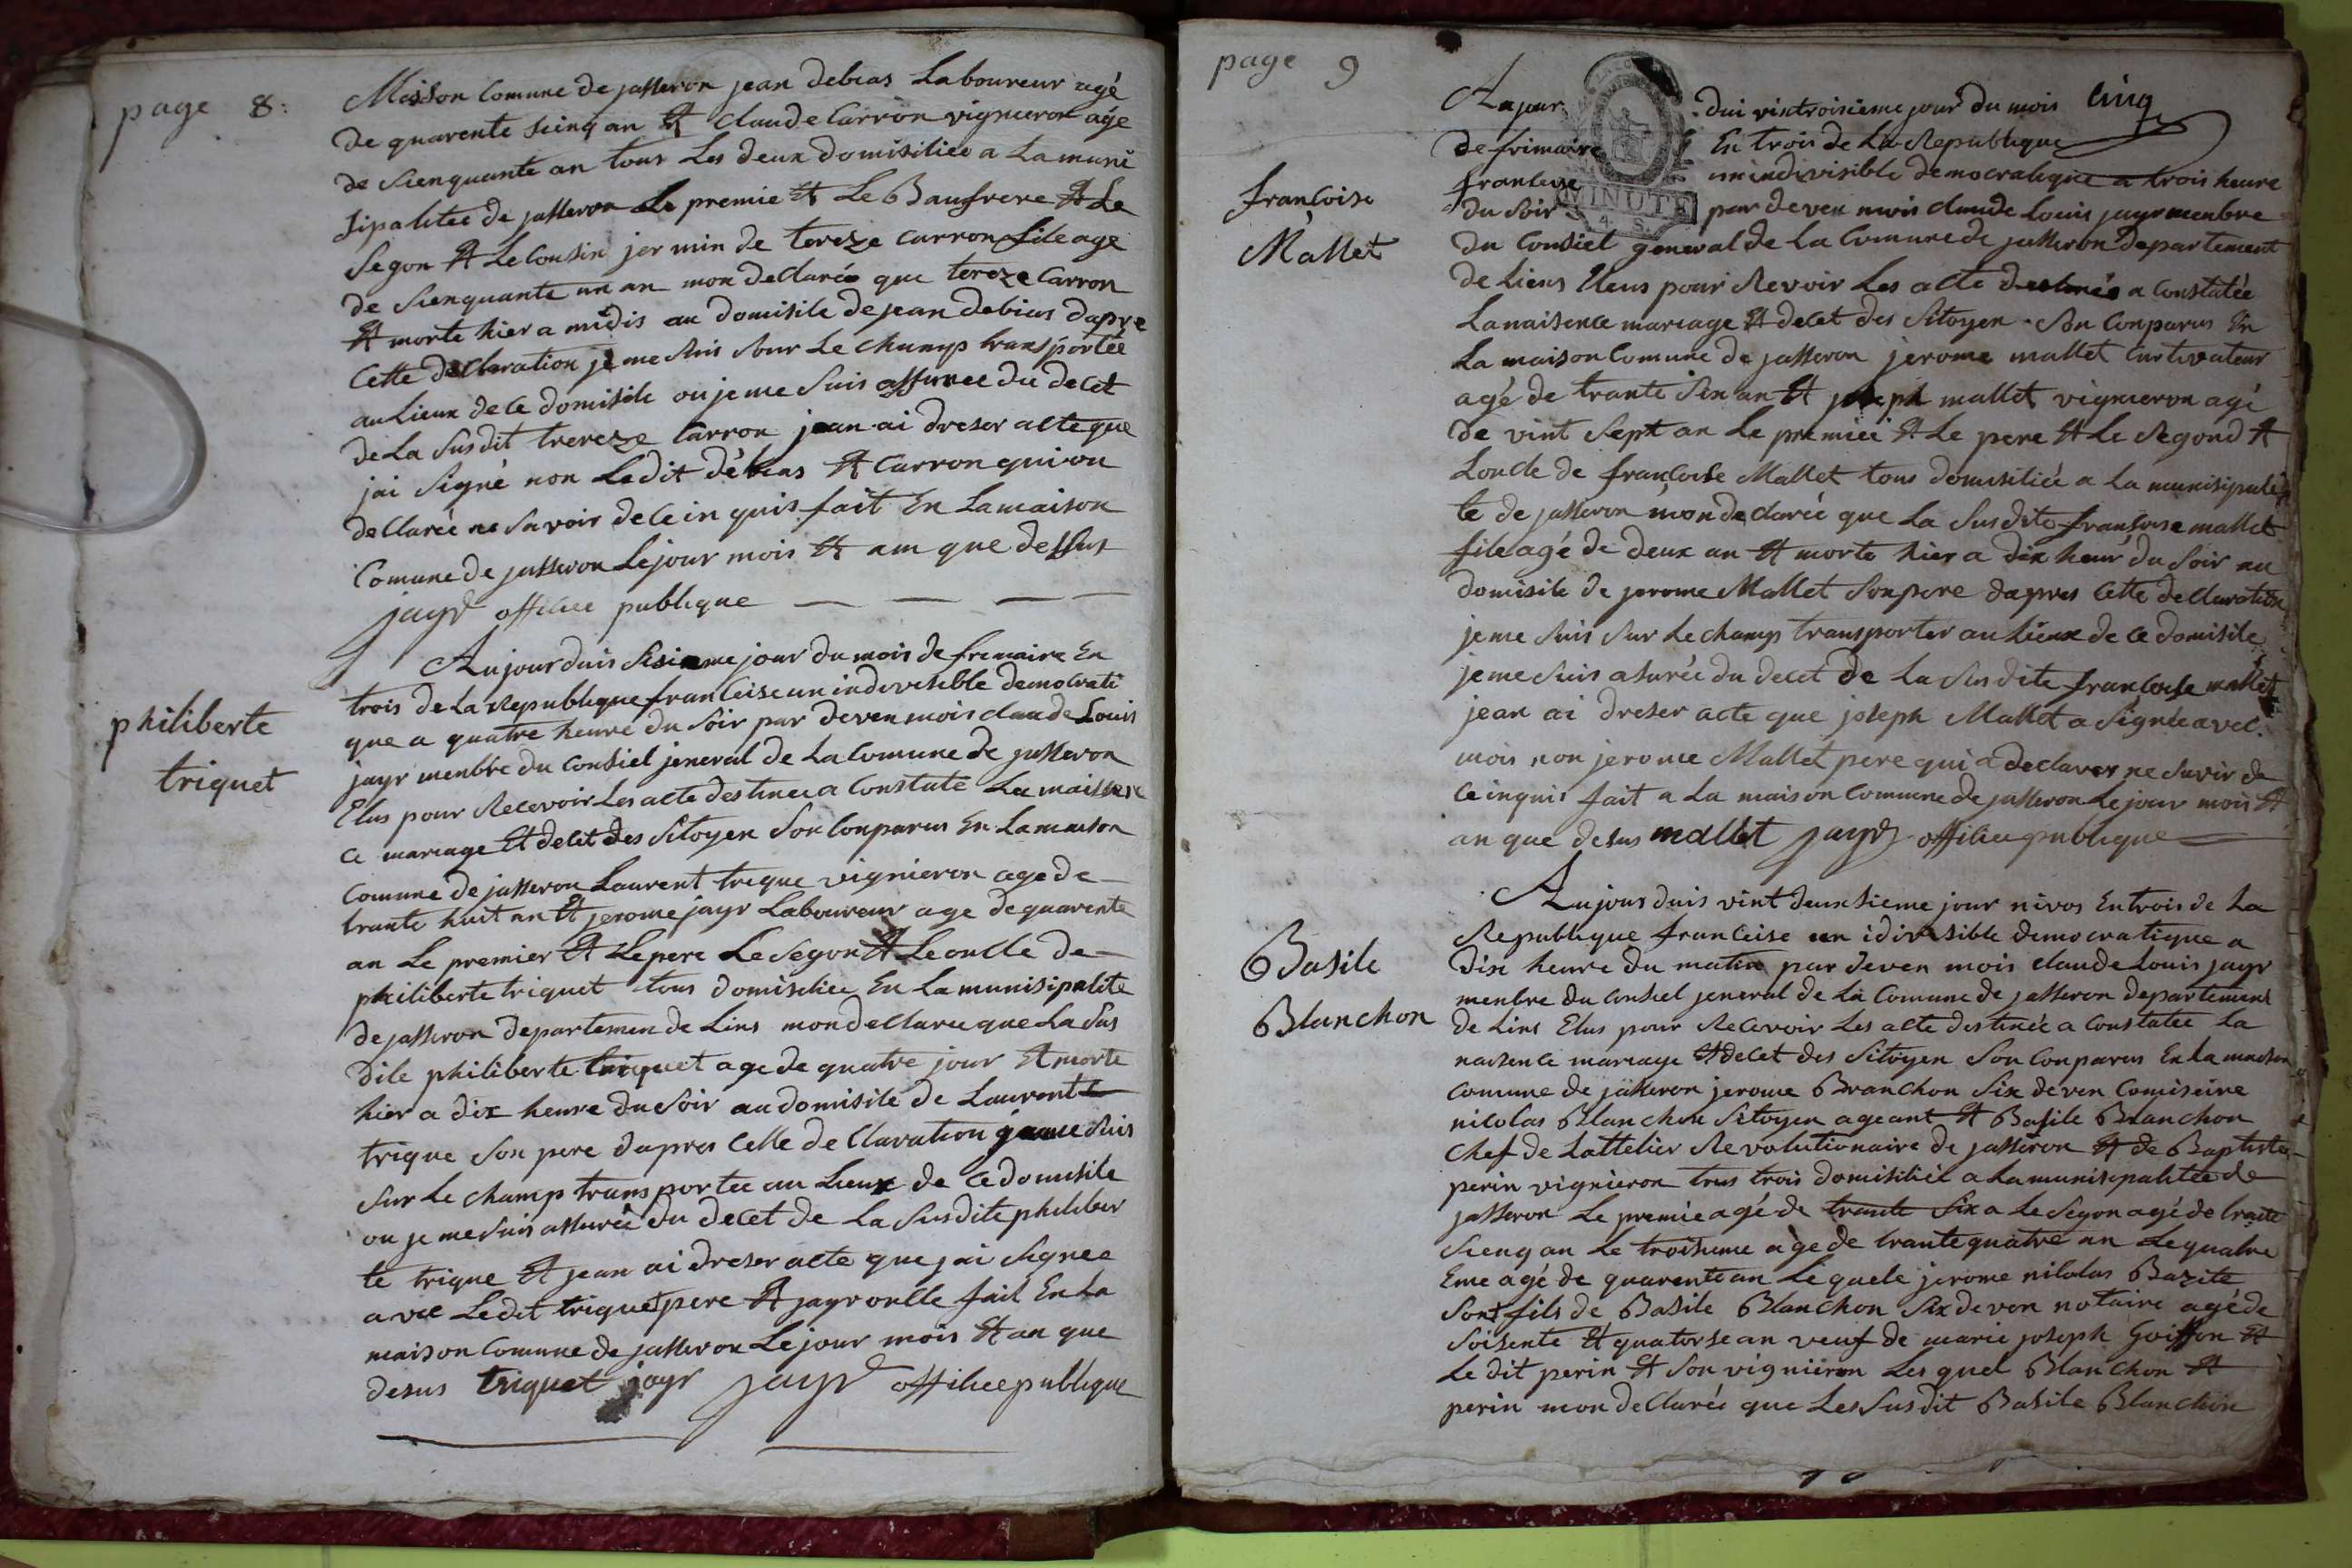 page 8:
Maison Comune de jasseron jean debias Laboureur agé
de quarente sienq an Et Claude Carron vigneron agé
de sienquante an tous Les deux domisiliée a La muni
sipalitée de jasseron Le premie Et Le Baufrere Et Le
Segon Et Le Cousin jermin de tereze Carron file age
de sienquante un an mon declarée que tereze Carron
Et morte hier a midis au domisile de jean debias dapre
Cette declaration je me suis sour Le champ transportée
au Lieux de Ce domisile ou je me suis assuree du decet
de La susdit trereze Carron jean ai dreser acte que
jai Signé non Ledit débias Et Carron qui on
declarée ne savoir de Ce in quis fait En La maison
Comune de jasseron Le jour mois Et am que dessus
jayr officiee publique
philiberte
triquet
Aujourduis sisieme jour du mois de fremaire En
trois de La Republique franceise un indivisible democrati
que a quatre heure du soir par deven mois claude Louis
jayr menbre du Consiel jeneral de La Comune de jasseron
Elus pour Recevoir Les acte destinee a Constate La naissen
ce mareage Et decet des Sitoyen Son Conparus En La maison
Comune de jasseron Laurent trique vignieron age de
trante huit an Et jerome jayr Laboureur age de quarente
an Le premier Et Le pere Le segon Et Le oncle de
philiberte triquet tous domisiliee En La munisipalite
de jasseron departemen de Lins mon declaree que La sus
dite philiberte triquet age de quatre jour Et morte
hier a dix heure du soir au domisile de Laurent
trique son pere dapres Cette declaration je me suis
sur Le champ transportee au Lieux de Ce domisile
ou je me suis assurée du decet de La susdite philiber
te trique Et jean ai dreser acte que jai Signee
avec Ledit triquet pere Et jayr oncle fait En La
maison Comune de jasseron Le jour mois Et an que
desus triquet jayr jayr officiee publique
page 9
cinq
françoise
Mallet
Aujour dui vintroisieme jour du mois
de frimaire En trois de La Republique
franceise un indivisible democratique a trois heure
du Soir par deven mois claude Louis jayr menbre
MINUTE
du Consiel general de La Comune de jasseron departement
de Liens Eleus pour Revoir Les acte destinés a Constatée
La naisence mareage Et decet des Sitoyen Son Conparus En
La maison Comune de jasseron jerome mallet Curtivateur
agé de trante sin an Et joseph mallet vignieron agé
de vint Sept an Le premiée Et Le pere Et Le Segond Et
Loncle de françoise Mallet tous domisiliée a La munisipali
te de jasseron mon declarée que La Susdite françoise mallet
file agé de deux an Et morte hier a dix heur du Soir au
domisile de jerome Mallet Son pere dapres Cette declaration
je me suis sur Le champ transporter au Lieux de Ce domisile
je me suis asurée du decet de La susdite francoise mallet
jean ai dreser acte que joseph Mallet a Signée avec
mois non jerome Mallet pere qui a declarer ne savoir de
Ce inquis fait a La maison Comune de jasseron Le jour mois Et
an que desus mallet jayr officiee publique
Basile
Blanchon
Aujourduis vint deuxsieme jour nivos En trois de La
Republique franceise un idivisible democratique a
dix heure du matin par deven mois claude Louis jayr
menbre du Consiel jeneral de La Comune de jasseron departement
de Lins Elus pour Recevoir Les acte destinée a Constatee La
naisence mareage Et decet des Sitoyen Son Conparus En La maison
Comune de jasseron jerome Branchon Six deven Comiseire
nicolas Blanchon Sitoyen ageant Et Basile Blanchon
Chef de Lattelier Revolutionaire de jasseron Et de Baptiste
perin vignieron tous trois domisiliée a La munisipalitée de
jasseron Le premie agé de trante Six a Le Segon agé de trante
Sienq an Le troisieme age de trante quatre an Le quatre
Eme agé de quarente an Lequele jerome nicolas Bazile
Sont fils de Basile Blanchon Six deven notaire agé de
Soisente Et quatorse an veuf de marie joseph Goiffon Et
Le dit perin Et Son vignieron Les quel Blanchon Et
perin mon declarée que Les Susdit Basile Blanchon